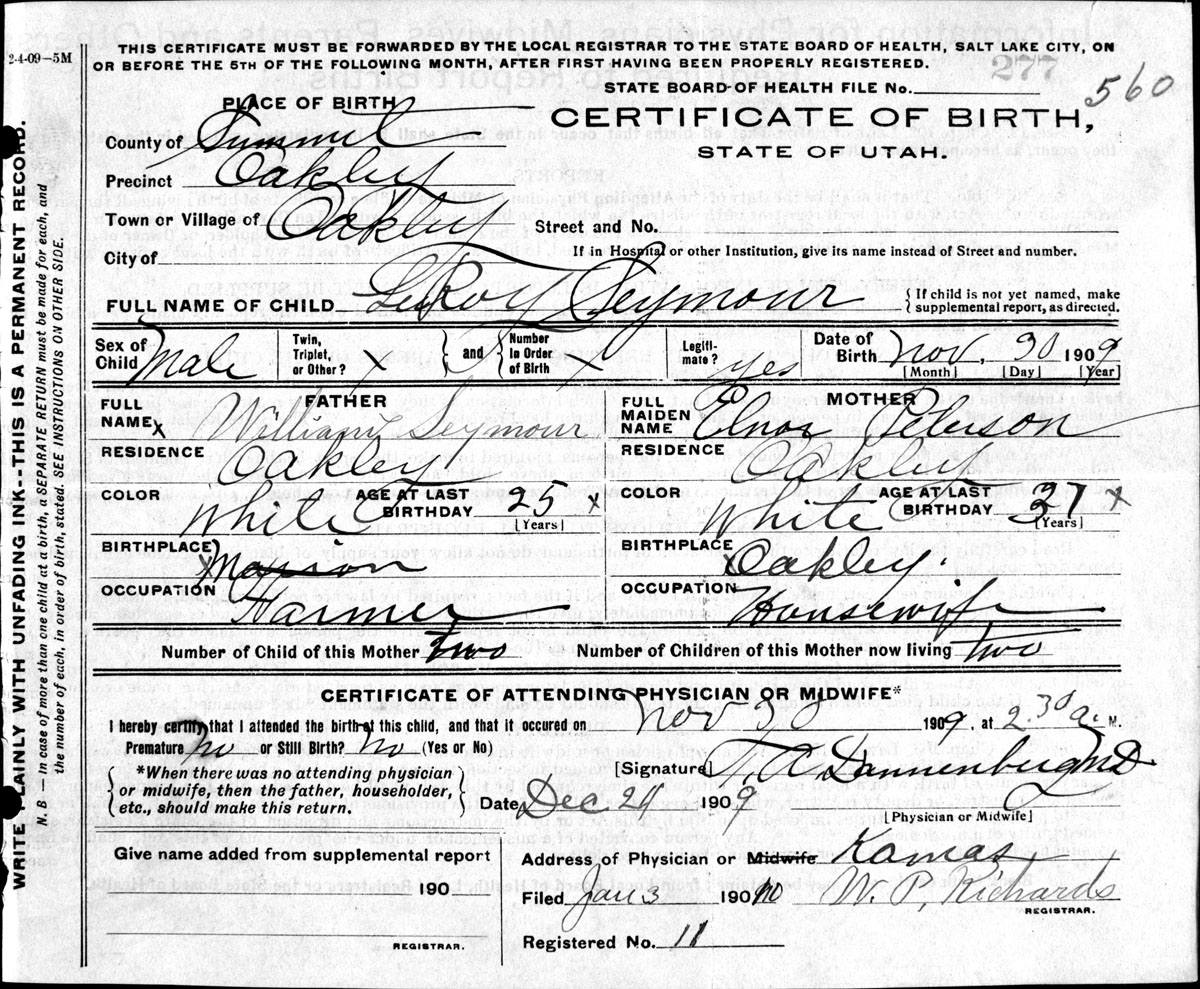 2-4-09—5M
THIS CERTIFICATE MUST BE FORWARDED BY THE LOCAL REGISTRAR TO THE STATE BOARD OF HEALTH, SALT LAKE CITY, ON
OR BEFORE THE 5TH OF THE FOLLOWING MONTH, AFTER FIRST HAVING BEEN PROPERLY REGISTERED.
277
STATE BOARD OF HEALTH FILE No. 560
PLACE OF BIRTH
CERTIFICATE OF BIRTH,
STATE OF UTAH.
County of Summit
Precinct Oakley
Town or Village of Oakley Street and No.
City of If in Hospital or other Institution, give its name instead of Street and number.
FULL NAME OF CHILD LeRoy Seymour { If child is not yet named, make supplemental report, as directed.
Sex of Child Male Twin, Triplet, or Other? x } and { Number In Order of Birth x Legiti-mate? yes Date of Birth Nov. 30 1909
[Month] [Day] [Year]
FATHER MOTHER
FULL NAME x William Seymour FULL MAIDEN NAME Elnor Peterson
RESIDENCE Oakley RESIDENCE Oakley
COLOR White AGE AT LAST BIRTHDAY 25 x [Years] COLOR White AGE AT LAST BIRTHDAY 27 x [Years]
BIRTHPLACE x BIRTHPLACE x Oakley.
OCCUPATION Farmer OCCUPATION Housewife
Number of Child of this Mother two Number of Children of this Mother now living two
CERTIFICATE OF ATTENDING PHYSICIAN OR MIDWIFE*
I hereby certify that I attended the birth of this child, and that it occured on Nov 30 1909, at 2.30 a. M.
Premature No or Still Birth? No (Yes or No)
{ *When there was no attending physician or midwife, then the father, householder, etc., should make this return. }
[Signature] Dannenberg MD
[Physician or Midwife]
Date Dec 1909
Give name added from supplemental report
190
REGISTRAR.
Address of Physician or Midwife Kamas
Filed Jan 3 190 10 W. P. Richards
REGISTRAR.
Registered No. 11
WRITE PLAINLY WITH UNFADING INK--THIS IS A PERMANENT RECORD.
N. B. — In case of more than one child at a birth, a SEPARATE RETURN must be made for each, and
the number of each, in order of birth, stated. SEE INSTRUCTIONS ON OTHER SIDE.